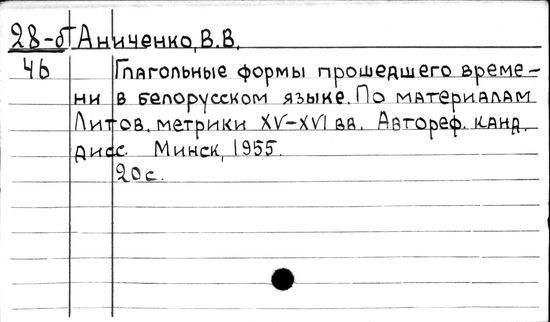 28-б Аниченко, В.В.
46 Глагольные формы прошедшего време-
ни в белорусском языке. По материалам
Литов. метрики XV–XVI вв. Автореф. канд.
дисс. Минск, 1955.
20 с.